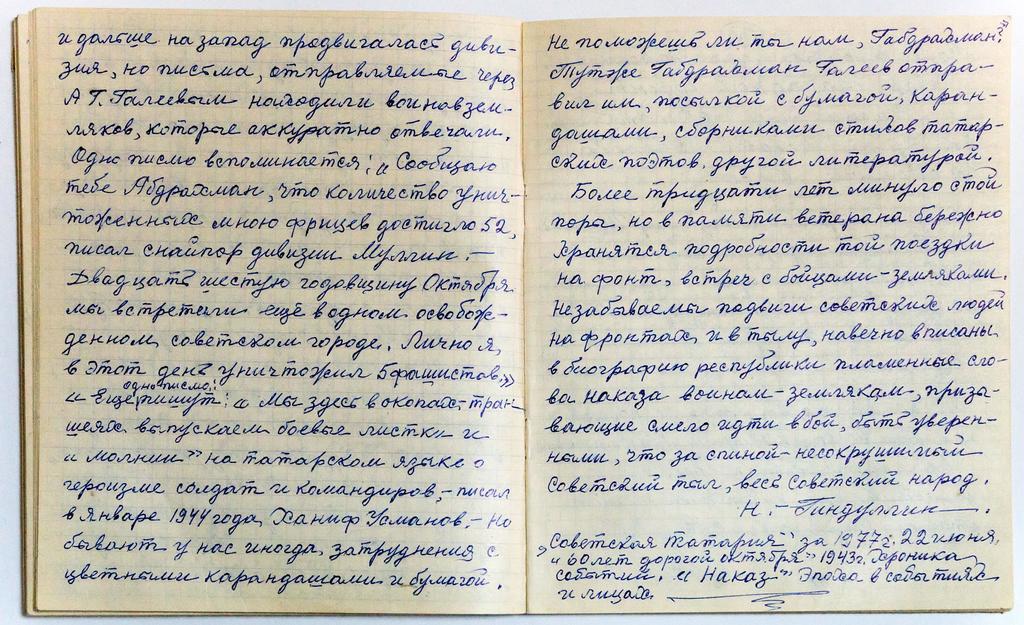 и дальше на запад продвигалась диви-
зия, но письма, отправляемые через
А Г. Галеевым находили воинов зем-
ляков, которые аккуратно отвечали.
Одно писмо вспоминается: „ Сообщаю
тебе Абдрахман, что количество унич-
тоженных мною фрицев достигло 52,
писал снайпор дивизии Муллин. –
Двадцать шестую годовщину Октября
мы встретили ещё в одном освобож-
денном, советском городе. Лично я,
в этот день уничтожил 5 фашистов."
одно писмо:
„ Ещё пишут: „ Мы здесь в окопах, тран-
шеях, выпускаем боевые листки и
„ молнии" на татарском языке о
героизме солдат и командиров, – писал
в январе 1944 года, Ханиф Усманов, – Но
бывают у нас иногда, затруднения с
цветными карандашами и бумагой.
Не поможешь ли ты нам, Габдрахман?
Тут же Габдрахман Галеев отпра-
вил им, посылкой с бумагой, каран-
дашами, сборниками стихов татар-
ских поэтов, другой литературой.
Более тридцати лет минуло с той
поры, но в памяти ветерана бережно
хранятся подробности той поездки
на фронт, встреч с бойцами-земляками.
Незабываемы подвиги советских людей
на фронтах, и в тылу, навечно вписаны
в биографию республики пламенные сло-
ва наказа воинам-землякам, призы-
вающие смело идти в бой, быть уверен-
ными, что за спиной – несокрушимый
Советский тыл, весь советский народ.
Н. – Гиндуллин.
„Советская Татария" за 1977 г. 22 июня,
„ 60 лет дорогой октября" 1943 г. Хроника
событий. „ Наказ" Эпоха в событиях
и лицах.